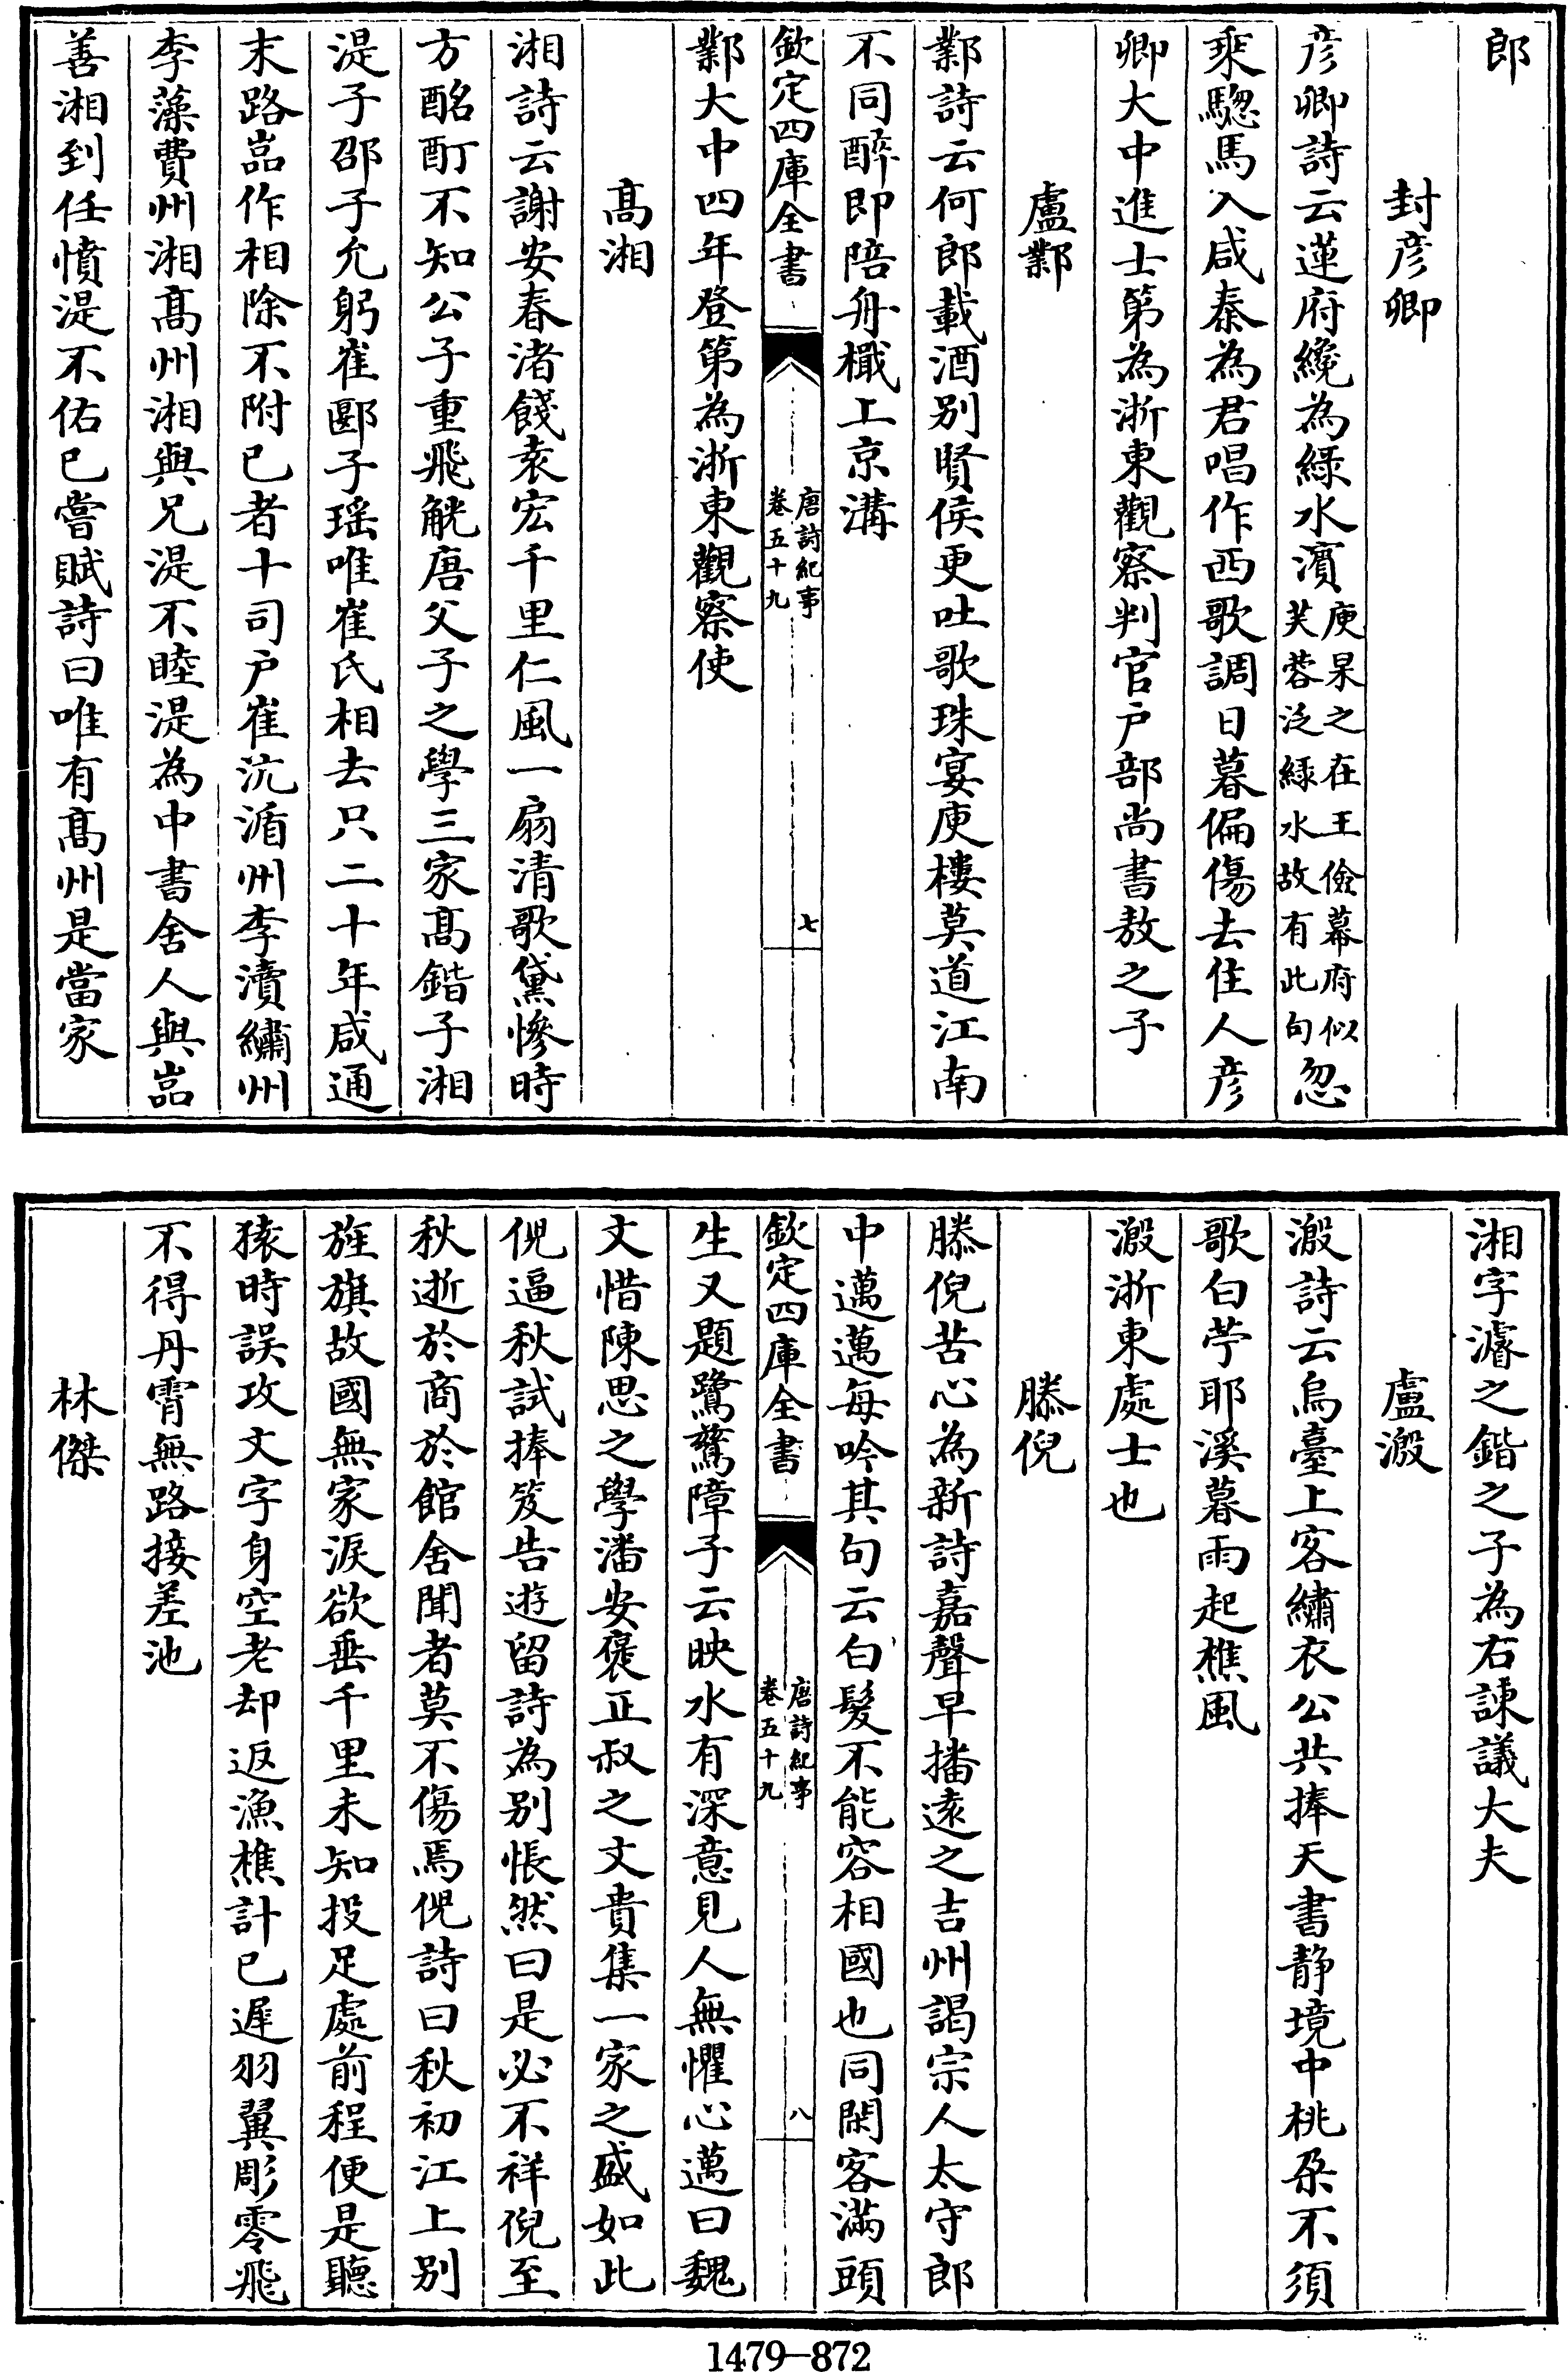 郎
封彦卿
彦卿詩云蓮府纔為綠水濵庾杲之在王儉幕府似芙蓉泛綠水故有此句忽
乘驄馬入咸秦為君唱作西歌調日暮偏傷去住人彦
卿大中進士第為浙東觀察判官户部尚書敖之子
盧鄴
鄴詩云何郎載酒别賢侯更吐歌珠宴庾樓莫道江南
不同醉即陪舟檝上京溝
欽定四庫全書
唐詩紀事
卷五十九
七
鄴大中四年登第為浙東觀察使
髙湘
湘詩云謝安春渚餞袁宏千里仁風一扇清歌黛慘時
方酩酊不知公子重飛觥唐父子之學三家髙鍇子湘
湜子邵子允躬崔郾子瑶唯崔氏相去只二十年咸通
末路嵓作相除不附已者十司户崔沆循州李瀆繡州
李藻費州湘髙州湘與兄湜不睦湜為中書舍人與嵓
善湘到任憤湜不佑已嘗賦詩曰唯有髙州是當家
湘字濬之鍇之子為右諫議大夫
盧澱
澱詩云烏臺上客繡衣公共捧天書静境中桃朶不須
歌白苧耶溪暮雨起樵風
澱浙東處士也
滕倪
滕倪苦心為新詩嘉聲早播逺之吉州謁宗人太守郎
中邁邁每吟其句云白髮不能容相國也同閑客滿頭
欽定四庫全書
唐詩紀事
卷五十九
八
生又題鷺鷥障子云映水有深意見人無懼心邁曰魏
文惜陳思之學潘安褒正叔之文貴集一家之盛如此
倪逼秋試捧笈告遊留詩為别悵然曰是必不祥倪至
秋逝於商於館舍聞者莫不傷焉倪詩曰秋初江上别
旌旗故國無家淚欲垂千里未知投足處前程便是聽
猿時誤攻文字身空老却返漁樵計已遲羽翼彫零飛
不得丹霄無路接差池
林傑
1479—872